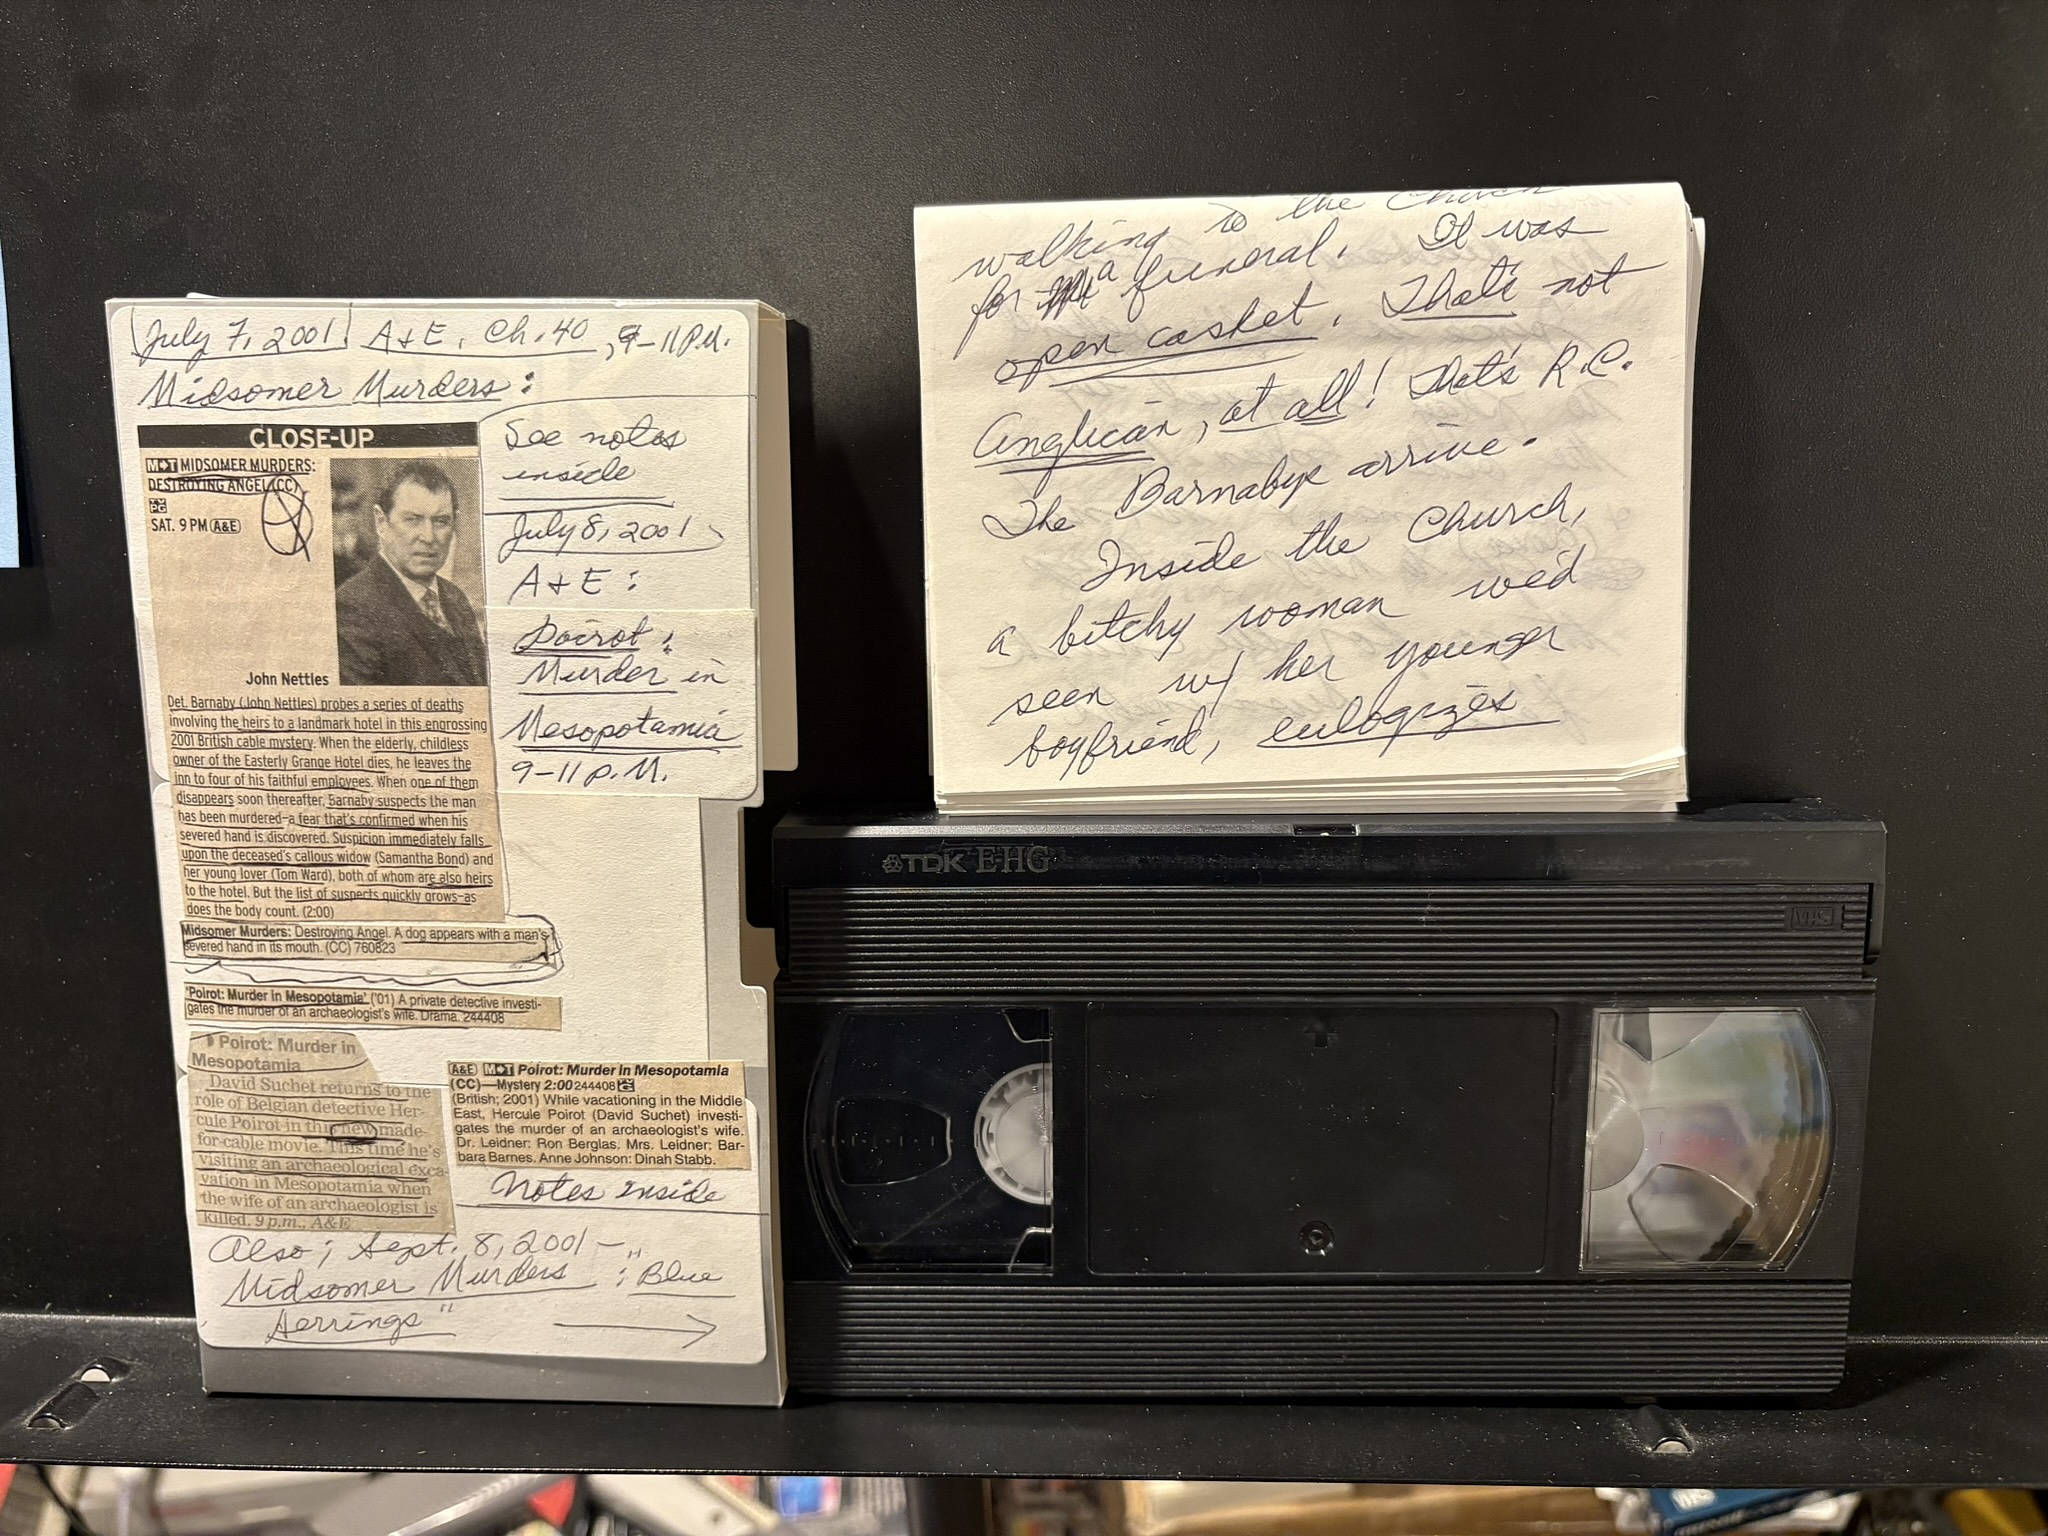 July 7, 2001 A+E, Ch. 40, 9-11 P.M.
Midsomer Murders:
CLOSE-UP
MIDSOMER MURDERS:
DESTROYING ANGEL (CC)
PG
SAT. 9 PM A&E
John Nettles
Det. Barnaby (John Nettles) probes a series of deaths
involving the heirs to a landmark hotel in this engrossing
2001 British cable mystery. When the elderly, childless
owner of the Easterly Grange Hotel dies, he leaves the
inn to four of his faithful employees. When one of them
disappears soon thereafter, Barnaby suspects the man
has been murdered—a fear that's confirmed when his
severed hand is discovered. Suspicion immediately falls
upon the deceased's callous widow (Samantha Bond) and
her young lover (Tom Ward), both of whom are also heirs
to the hotel. But the list of suspects quickly grows—as
does the body count. (2:00)
Midsomer Murders: Destroying Angel. A dog appears with a man's
severed hand in its mouth. (CC) 760823
See notes
inside
July 8, 2001
A+E:
Poirot:
Murder in
Mesopotamia
9-11 P.M.
'Poirot: Murder in Mesopotamia' ('01) A private detective investi-
gates the murder of an archaeologist's wife. Drama. 244408
Poirot: Murder in
Mesopotamia
David Suchet returns to the
role of Belgian detective Her-
cule Poirot in this new made-
for-cable movie. This time he's
visiting an archaeological exca-
vation in Mesopotamia when
the wife of an archaeologist is
killed. 9 p.m., A&E
A&E Poirot: Murder in Mesopotamia
(CC)—Mystery 2:00 244408
(British; 2001) While vacationing in the Middle
East, Hercule Poirot (David Suchet) investi-
gates the murder of an archaeologist's wife.
Dr. Leidner: Ron Berglas. Mrs. Leidner: Bar-
bara Barnes. Anne Johnson: Dinah Stabb.
Notes inside
Also; Sept. 8, 2001 –
Midsomer Murders: "Blue
Herrings"
walking to the Church
for a funeral. It was
open casket. That's not
Anglican, at all! That's R.C.
The Barnabys arrive.
Inside the Church,
a bitchy woman we'd
seen w/ her younger
boyfriend, eulogizes
TDK E-HG
VHS